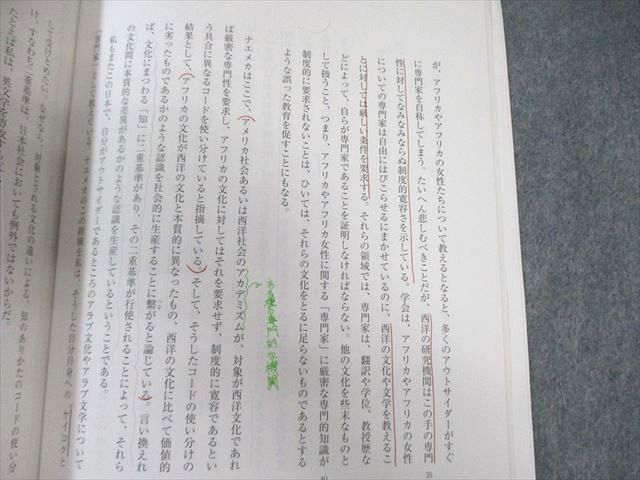 が、アフリカやアフリカの女性たちについて教えるとなると、多くのアウトサイダーがすぐ
に専門家を自称してしまう。たいへん悲しむべきことだが、西洋の研究機関はこの手の専門
性に対してなみなみならぬ制度的寛容さを示している。学会は、アフリカやアフリカの女性
についての専門家は自由にはびこらせるにまかせているのに、西洋の文化や文学を教えるこ
とに対しては厳しい条件を要求する。それらの領域では、専門家は、翻訳や学位、教授歴な
どによって、自らが専門家であることを証明しなければならない。他の文化を些末なものと
して扱うこと、つまり、アフリカやアフリカ女性に関する「専門家」に厳密な専門的知識が
制度的に要求されないことは、ひいては、それらの文化をとるに足らないものであるとする
ような誤った教育を促すことにもなる。
35
40
ナエメカはここで、アメリカ社会あるいは西洋社会のアカデミズムが、対象が西洋文化であれ
ば厳密な専門性を要求し、アフリカの文化に対してはそれを要求せず、制度的に寛容であるとい
う具合に異なるコードを使い分けていると指摘している。そして、そうしたコードの使い分けの
結果として、アフリカの文化が西洋の文化と本質的に異なったもの、西洋の文化に比べて価値的
に劣ったものであるかのような認識を社会的に生産することに繫がると論じている。言い換えれ
ば、文化にまつわる「知」に二重基準があり、その二重基準が行使されることによって、それら
の文化間に本質的な差異があるかのような認識を生産しているということである。
私もまたこの日本で、自分がアウトサイダーであるところのアラブ文化やアラブ文学について
「専門家」として教えている。ナエメカのこの指摘を私は、そうした自分自身への ケイコク と
して受けとめたい。なぜなら、対象とされる文化の違いによる、知のありかたのコードの使い分
け、すなわち二重基準は、日本社会においても例外ではないからだ。
たとえば私は、英文学を専攻する